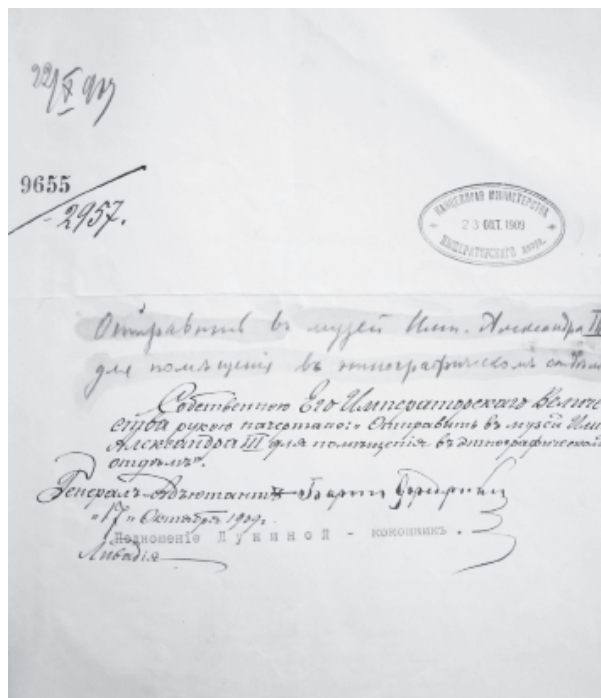 22/X 909
9655
2957.
КАНЦЕЛЯРІЯ МИНИСТЕРСТВА
23 ОКТ. 1909
ИМПЕРАТОРСКАГО ДВОРА.
Отправить въ музей Имп. Александра III
для помѣщенія въ этнографическомъ отдѣл
Собственною Его Императорскаго Величе
ства рукою начертано: „Отправить въ музей Имп
Александра III для помѣщенія въ этнографическомъ
отдѣлѣ".
Генералъ-Адъютантъ Баронъ Фредериксъ
„17" Октября 1909г.
Подношеніе Луниной - кокошникъ.
Ливадія